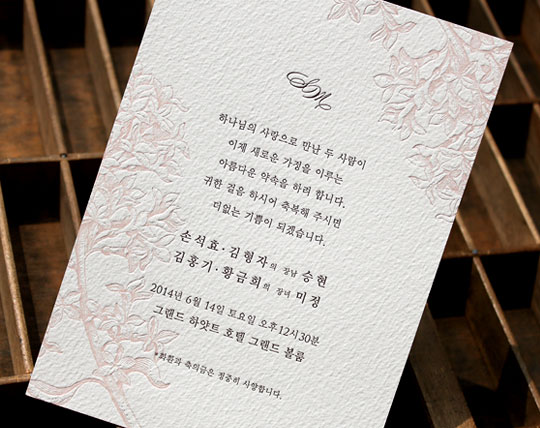 SM
하나님의 사랑으로 만난 두 사람이
이제 새로운 가정을 이루는
아름다운 약속을 하려 합니다.
귀한 걸음 하시어 축복해 주시면
더없는 기쁨이 되겠습니다.
손석효·김형자의 장남 승현
김홍기·황금희의 장녀 미정
2014년 6월 14일 토요일 오후12시30분
그랜드 하얏트 호텔 그랜드 볼룸
*화환과 축의금은 정중히 사양합니다.